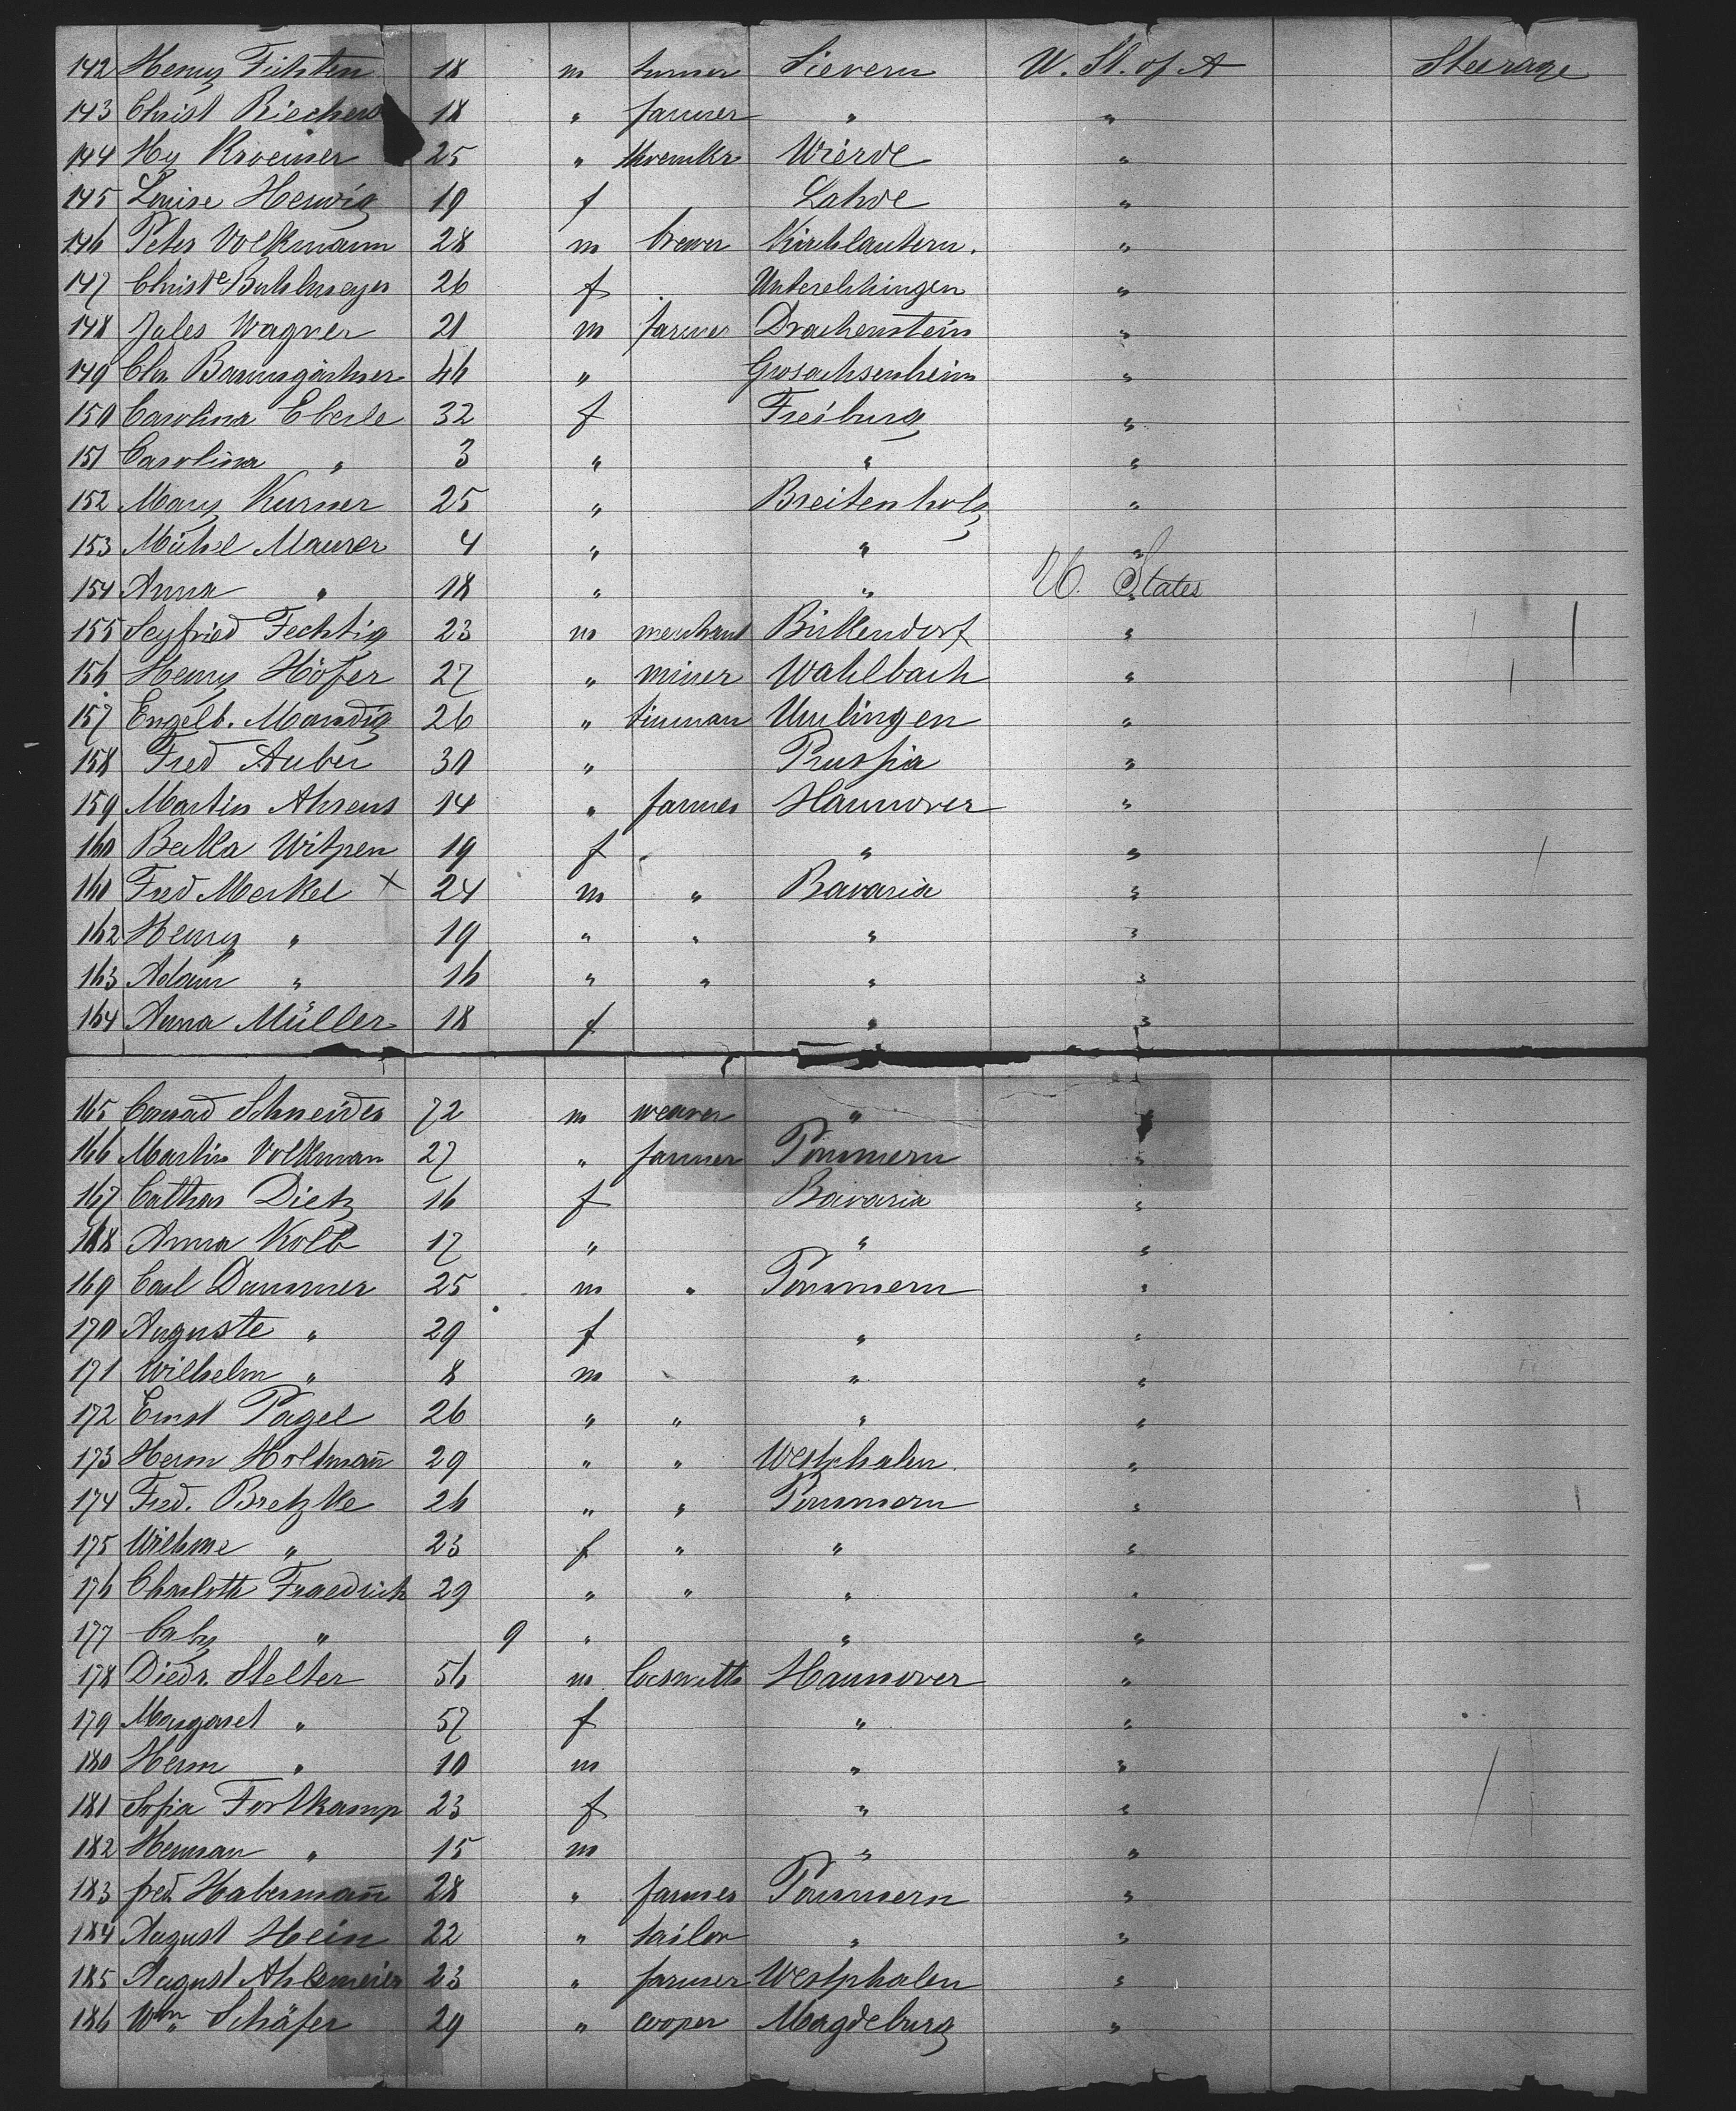 142 Henry Fichten 18 m turner Sievern U. St. of A Steerage
143 Christ Riechers 18 " farmer " "
144 Hy Kroemer 25 " shoemkr Wierde "
145 Louise Herwig 19 f Lahde "
146 Peter Volkmann 28 m brewer Kirchlautern. "
147 Christe Buhlmeyer 26 f Unterelchingen "
148 Jules Wagner 21 m farmer Drachenstein "
149 Chr. Baumgärtner 46 " Grosachsenheim "
150 Carolina Eberle 32 f Freiburg "
151 Carolina " 3 " " "
152 Mary Kurner 25 " Breitenholz "
153 Michel Maurer 4 " " "
154 Anna " 18 " " U. States
155 Seyfried Fechtig 23 m merchant Birkendorf "
156 Henry Höfer 27 " miner Wahlbach "
157 Engelb. Mandig 26 " tinman Umlingen "
158 Fred Auber 30 " Prussia "
159 Martin Ahrens 14 " farmer Hannover "
160 Betta Witpen 19 f " "
161 Fred Merkel x 24 m " Bavaria "
162 Henry " 19 " " " "
163 Adam " 16 " " " "
164 Anna Müller 18 f " "
165 Conrad Schneider 72 m weaver " "
166 Martin Volkman 27 " farmer Pommern "
167 Cathar Dietz 16 f Bavaria "
168 Anna Kolb 17 " " "
169 Carl Dummer 25 m " Pommern "
170 Auguste " 29 f " "
171 Wilhelm " 8 m " "
172 Ernst Pagel 26 " " " "
173 Herm Holtmañ 29 " " Westphalen "
174 Fred. Bretzke 26 " " Pommern "
175 Wilhme " 23 f " " "
176 Charlotte Fraedrich 29 " " " "
177 " 9 " " "
178 Diedr. Stelter 56 m locsmith Hannover "
179 Margaret " 57 f " "
180 Herm " 10 m " "
181 Sofia Fortkamp 23 f " "
182 Herman " 15 m " "
183 fred Habermañ 28 " farmer Pommern "
184 August Hein 22 " tailor " "
185 August Ahlemeier 23 " farmer Westphalen "
186 Wm. Schäfer 29 " cooper Magdeburg "